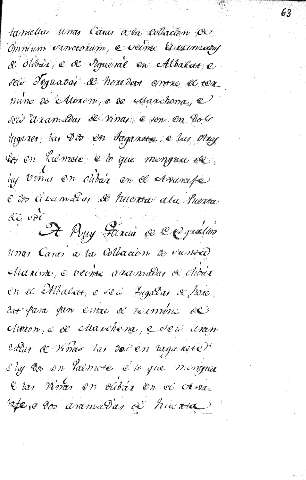 63
unas Casas a la collacion de
Omnium Sanctorum, e veinte aranzadas
de olibar, e de figueral en Albalat, e
seis Yuguadas de heredat entre el ter-
mino de Moron, e de Marchena, e
seis aranzadas de viñas, e son en dos
lugares, las dos en Taganete, e las
dos en Paternete e lo que mengua de
las viñas en olibar en el Axarafe
e dos aranzadas de huerta a la Puerta
de
A Ruy Garcia de
unas Casas a la Collacion de Santa
Marina, e veinte aranzadas de olibar
en el Albalat, e seis Yugadas de here-
dat para pan entre el termino de
Moron, e de Marchena, e seis aran-
zadas de viñas las dos en taganete
e las dos en Paternete e lo que mengua
e las viñas en olibar en el Axa-
rafe, e dos aranzadas de huerta